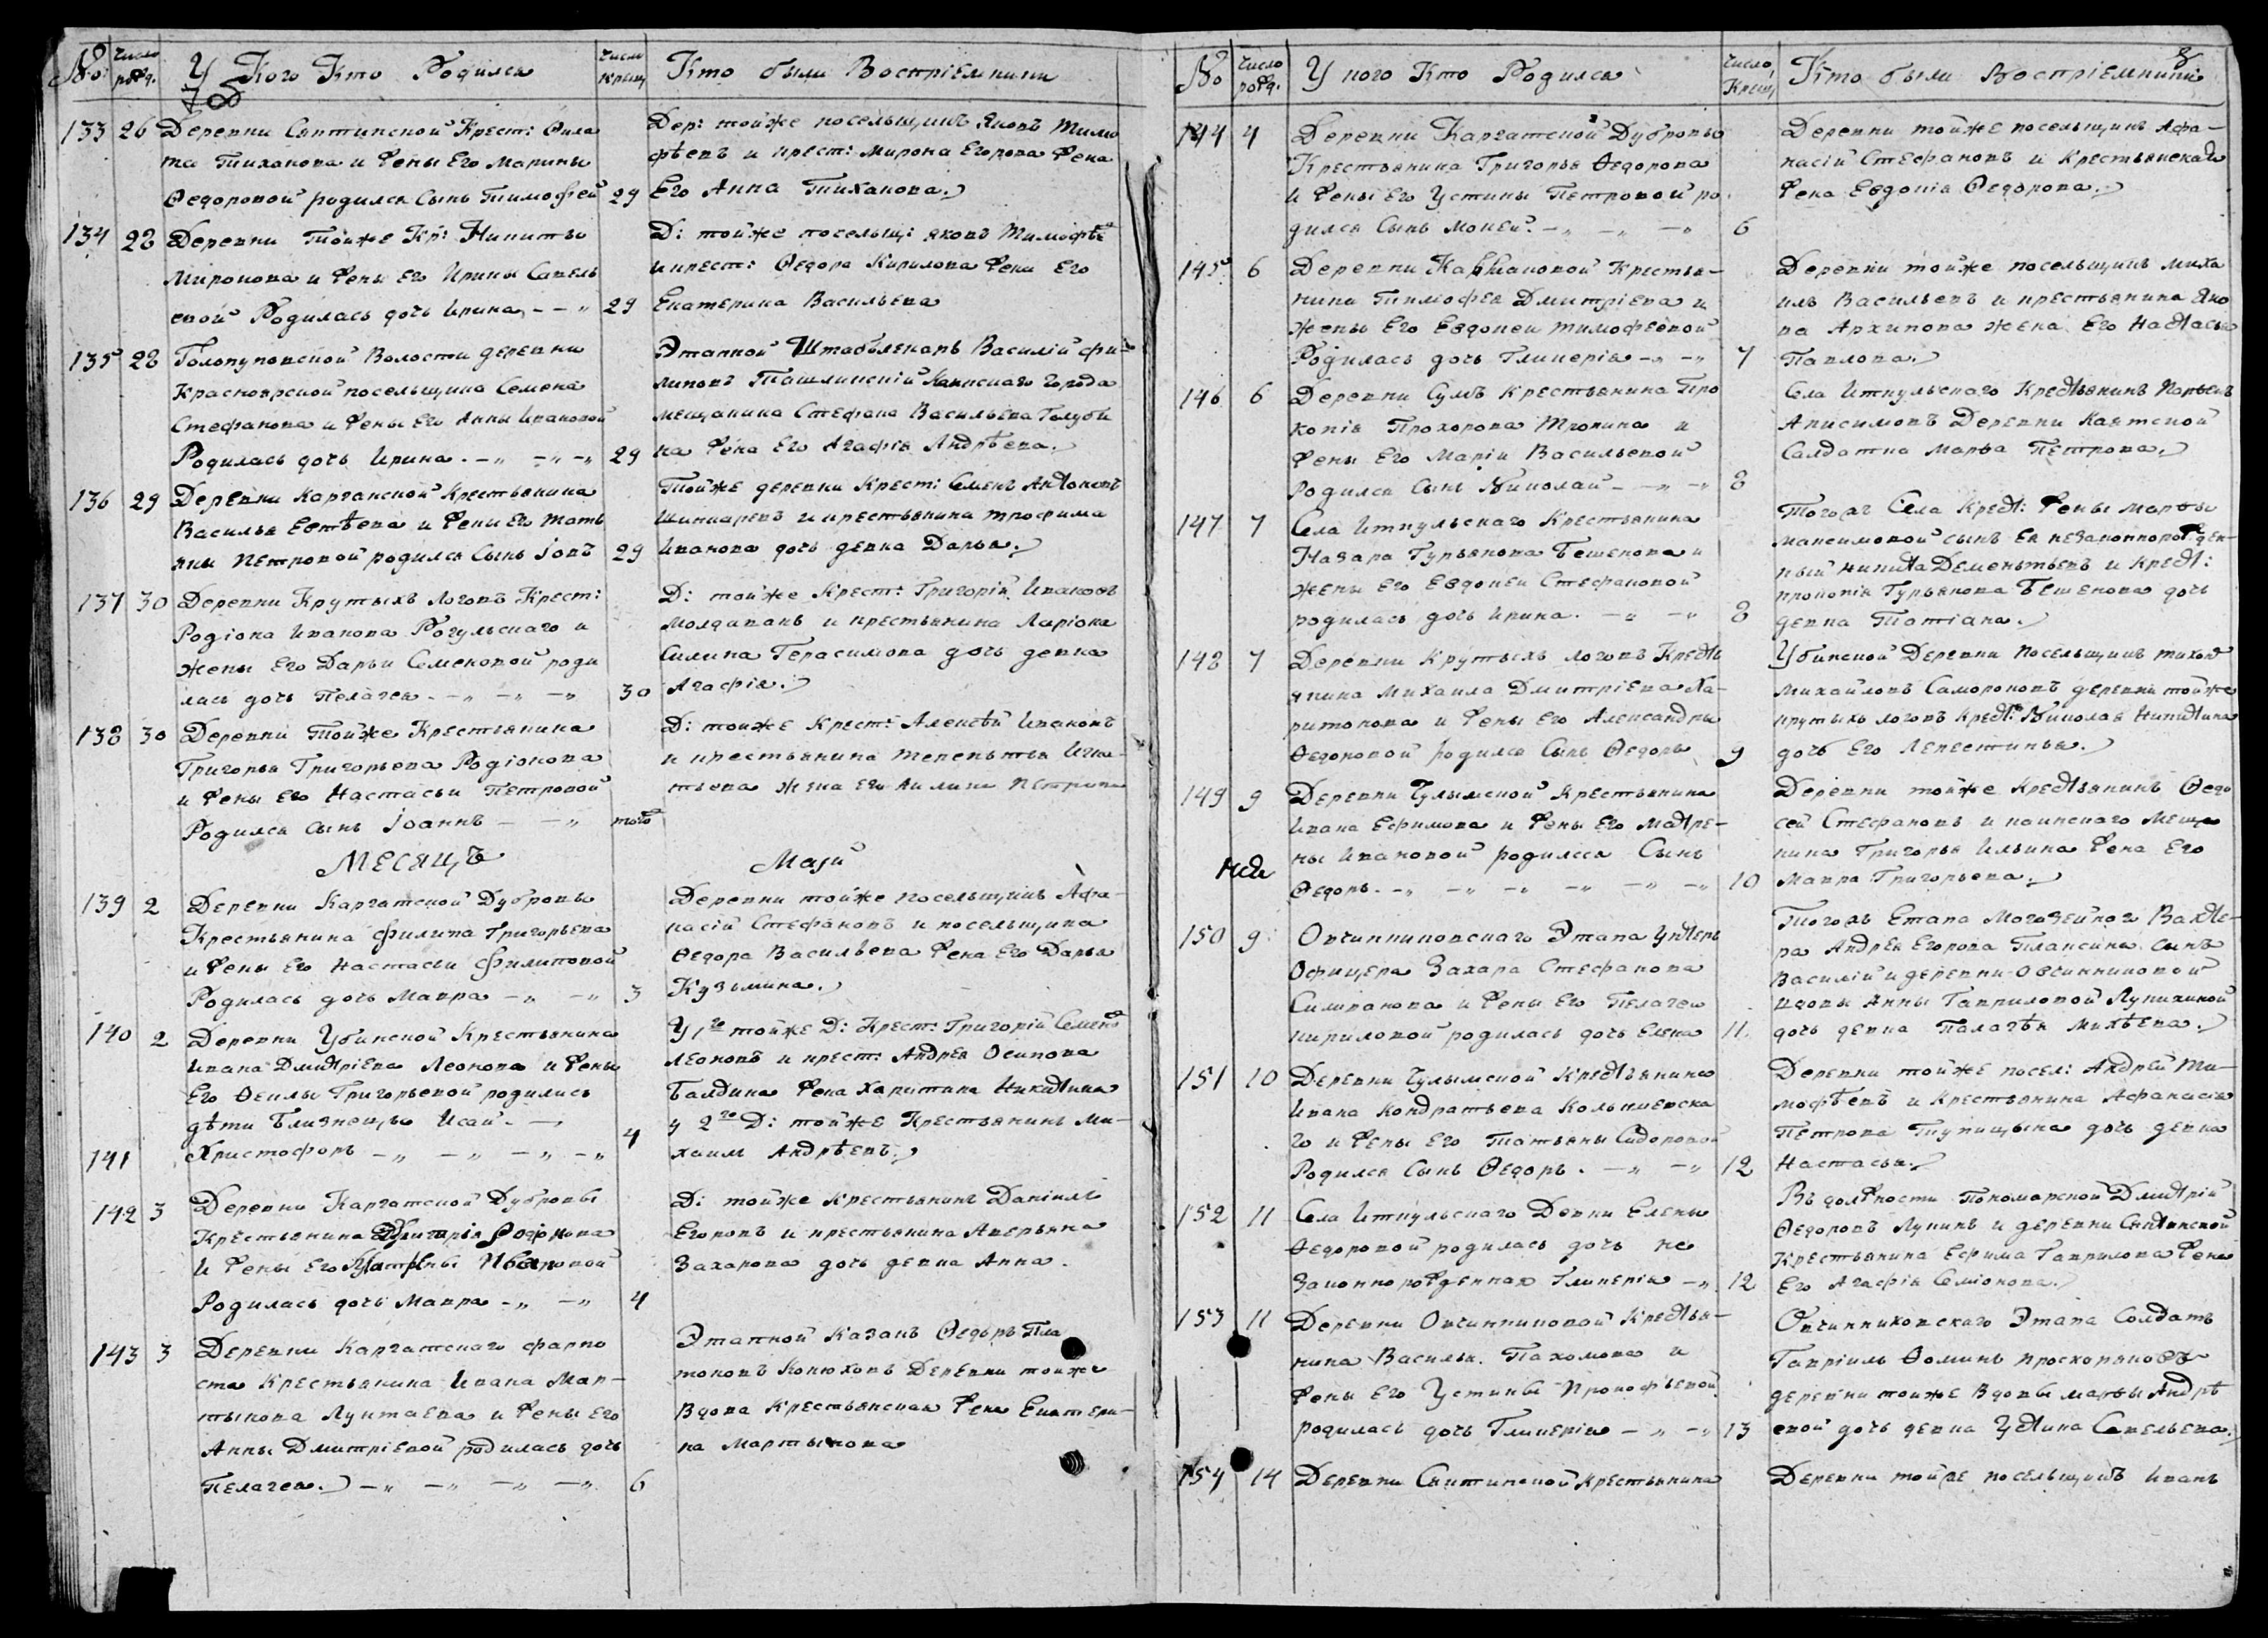 №: число рожд. У Кого Кто Родился число крещ Кто были Воспріемники
7об
133 26 Деревни Сяптинской Крест: Фила
та Тиханова и жены Его Марины
Ѳедоровой родился сынъ Тимофей 29
Дер: тойже посельщикъ Яковъ Тимо
фѣевъ и крест: Мирона Егорова жена
Его Анна Тиханова.
134 28 Деревни Тойже Кр: Никиты
Миронова и жены Его Ирины Савель
евой Родилась дочь Ирина 29
Д: тойже посельщ: яковъ Тимофѣе
и крест: Ѳедора Кирилова жена Его
Екатерина Васильева
135 28 Голопуповской Волости деревни
Красноярской посельщика Семена
Стефанова и жены Его Анны Ивановой
Родилась дочь Ирина. 29
Этапной Штабълекарь Василій Фи-
липовъ Ташлинскій Каинскаго города
мещанина Стефана Васильева Голуби
на жена Его Агафія Андрѣева.
136 29 Деревни Карганской Крестьянина
Василья Евтѣева и жены Его Тать
яны Петровой родился Сынъ Іовъ 29
Тойже деревни Крест: Семенъ Антоновъ
Шинкаревъ и крестьянина Трофима
Иванова дочь девка Дарья.
137 30 Деревни Крутыхъ логовъ Крест:
Родіона Иванова Рогульскаго и
жены Его Дарьи Семеновой роди
лась дочь Пелагея. 30
Д: тойже Крест: Григорій Ивановъ
Молдаванъ и крестьянина Ларіона
Силина Герасимова дочь девка
Агафія.
138 30 Деревни Тойже Крестьянина
Григорья Григорьева Родіонова
и жены Его Настасьи Петровой
Родился сынъ Іоаннъ того
Д: тойже Крест: Алексѣй Ивановъ
и крестьянина Терентья Игна-
тьева жена Его Акилина Петрова
Месяцъ Маій
139 2 Деревни Каргатской Дубровы
Крестьянина Филипа Григорьева
и жены Его Настасьи Филиповой
Родилась дочь Мавра 3
Деревни тойже посельщикъ Афа-
насій Стефановъ и посельщика
Ѳедора Васильева жена Его Дарья
Кузьмина.
140 2 Деревни Убинской Крестьянина
Ивана Дмитріева Леонова и жены
Его Ѳеклы Григорьевой родились
дѣти Близнецы Исай.
141 Христофоръ 4
У 1го тойже Д: Крест: Григорій Семено
Леоновъ и крест: Андрея Осипова
Балдина жена Харитина Никитина
у 2го Д: тойже Крестьянинъ Ми-
хаилъ Андрѣевъ.
142 3 Деревни Каргатской Дубровы
Крестьянина Родіонова
и жены Его Ивановой
Родилась дочь Мавра 4
Д: тойже Крестьянинъ Даніилъ
Егоровъ и крестьянина Аверьяна
Захарова дочь девка Анна.
143 3 Деревни Каргатскаго фарпо
ста Крестьянина Ивана Мар-
тынова Лунтаева и жены Его
Анны Дмитріевой родилась дочь
Пелагея. 6
Этапной Казакъ Ѳедоръ Пла
тоновъ Конюховъ Деревни тойже
Вдова Крестьянская жена Екатери-
на Мартынова
№ число рожд. У кого Кто Родился число Крещ Кто были Воспріемники 8
144 4 Деревни Каргатской Дубровы
Крестьянина Григорья Ѳедорова
и жены Его Устины Петровой ро
дился Сынъ Мокей. 6
Деревни тойже посельщикъ Афа-
насій Стефановъ и Крестьянская
жена Евдокія Ѳедорова.
145 6 Деревни Крестья-
нина Тимофея Дмитріева и
жены Его Евдокеи Тимофеевой
Родилась дочь Гликерія 7
Деревни тойже посельщикъ Миха
илъ Васильевъ и крестьянина Яко
ва Архипова жена Его Настасья
Павлова.
146 6 Деревни Сумъ Крестьянина Про
копія Прохорова Тронина и
жены Его Маріи Васильевой
родился Сынъ Николай 8
Села Иткульскаго Крестьянинъ
Анисимовъ Деревни Каятской
Салдатка Марья Петрова.
147 7 Села Иткульскаго Крестьянина
Назара Гурьянова Бешенова и
жены Его Евдокеи Стефановой
родилась дочь Ирина. 8
Тогожъ Села Крест: жены Марфы
Максимовой сынъ Ея незаконнорожден-
ный Никита Дементьевъ и Крест:
прокопія Гурьянова Бешенова дочь
девка Татіана.
148 7 Деревни Крутыхъ логовъ Кресть
янина Михаила Дмитріева Ха-
ритонова и жены Его Александры
Ѳедоровой родился Сынъ Ѳедоръ 9
Убинской Деревни посельщикъ Тихонъ
Михайловъ Самороковъ деревни тойже
крутыхъ логовъ Крест: Николая Никитина
дочь Его Лепестинья.
149 9 Деревни Чулымской Крестьянина
Ивана Ефимова и жены Его Матре-
ны Ивановой родился Сынъ
Ѳедоръ. 10
Деревни тойже Крестьянинъ Ѳедо
сей Стефановъ и каинскаго Меща
нина Григорья Ильина жена Его
Мавра Григорьева.
150 9 Овчинниковскаго Этапа унтеръ
Офицера Захара Стефанова
Симванова и жены Его Пелагеи
Кириловой родилась дочь Елена 11
Тогожъ Етапа Могозейного Вахте-
ра Андрея Егорова Плаксина сынъ
Василій и деревни Овчинниковой
вдовы Анны Гавриловой Лупихиной
дочь девка Палагѣя Михѣева.
151 10 Деревни Чулымской Крестьянина
Ивана Кондратьева Кольниевска
го и жены Его Татьяны Сидоровой
Родился Сынъ Ѳедоръ. 12
Деревни тойже посел: Андрей Ти-
мофѣевъ и крестьянина Афанасія
Петрова Тупицына дочь девка
Настасья.
152 11 Села Иткульскаго Девки Елены
Ѳедоровой родилась дочь не
Законнорожденная Гликерія 12
Въ должности Пономарской Дмитрій
Ѳедоровъ Лукинъ и деревни
Крестьянина Ефима Гаврилова жена
Его Агафія Семіонова.
153 11 Деревни Овчинниковой Крестья-
нина Василья Пахомова и
жены Его Устиньи Прокофьевой
родилась дочь Гликерія 13
Овчинниковскаго Этапа Солдатъ
Гавріилъ Ѳоминъ Проскоряковъ
деревни тойже Вдовы Марфы Андрѣ
евой дочь девка Устина Савельева.
154 14 Деревни Сяптинской Крестьянина
Деревни тойже посельщикъ Иванъ